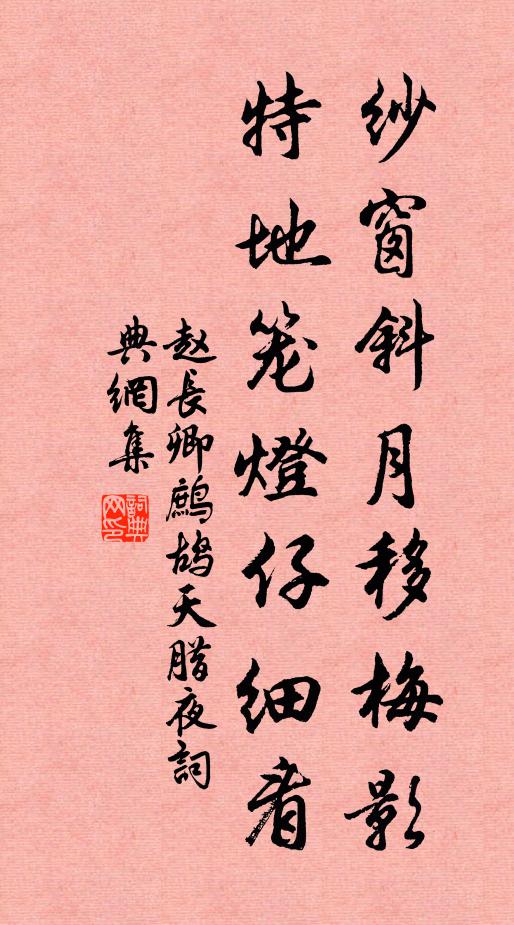 紗窗斜月移梅影
特地笼燈仔细看
赵長卿鷓鴣天腊夜詞
典網集
詞典网印